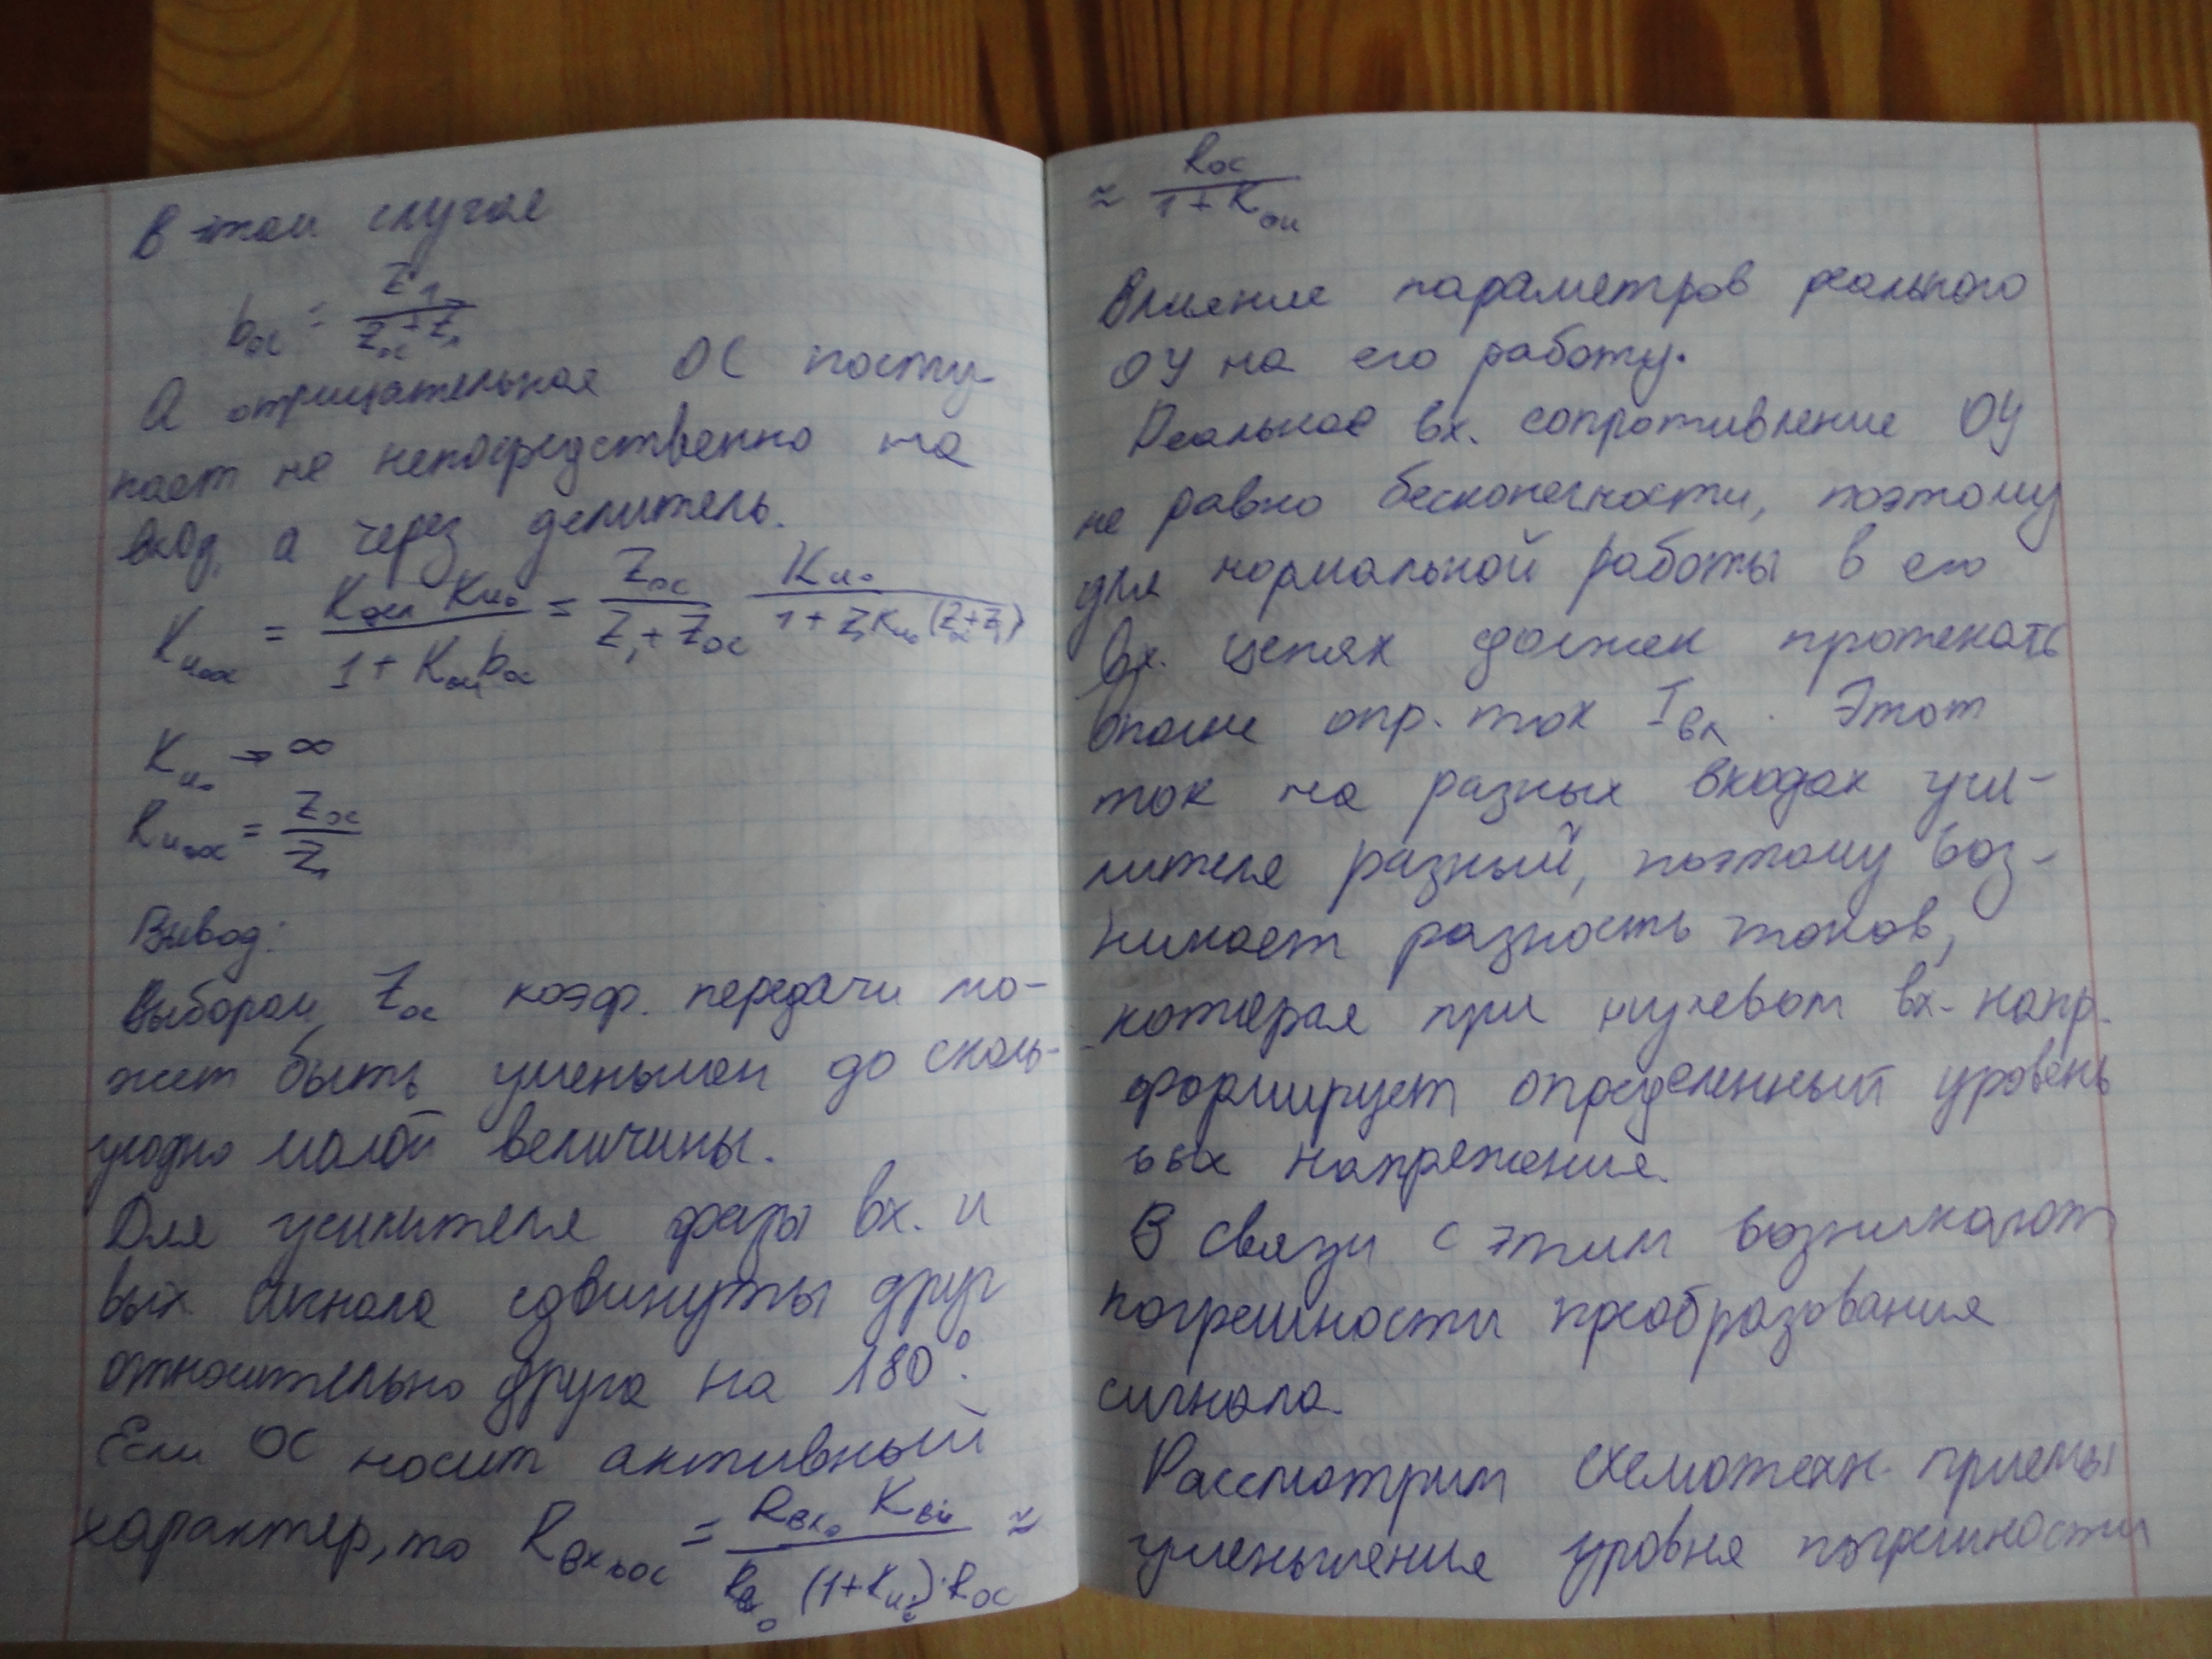 В этом случае
b_ос = Z_1 / (Z_ос + Z_1)
А отрицательная ОС посту-
пает не непосредственно на
вход, а через делитель.
K_uос = K_дел K_u0 / (1 + K_ou b_ос) = Z_ос / (Z_1 + Z_ос) K_u0 / (1 + Z_1 K_u0 (Z_ос + Z_1))
K_u0 → ∞
K_uос = Z_ос / Z_1
Вывод:
Выбором Z_ос коэф. передачи мо-
жет быть уменьшен до сколь-
угодно малой величины.
Для усилителя фазы вх. и
вых. сигнала сдвинуты друг
относительно друга на 180°.
Если ОС носит активный
характер, то R_вх ос = R_вх0 / (1 + K_u) · R_ос ≈
≈ R_ос / (1 + K_ou)
Влияние параметров реального
ОУ на его работу.
Реальное вх. сопротивление ОУ
не равно бесконечности, поэтому
для нормальной работы в его
вх. цепях должен протекать
вполне опр. ток I_вх. Этот
ток на разных входах уси-
лителя разный, поэтому воз-
никает разность токов,
которая при нулевом вх. напр.
формирует определенный уровень
вых напряжения.
В связи с этим возникают
погрешности преобразования
сигнала.
Рассмотрим схемотехн. приемы
уменьшения уровня погрешности